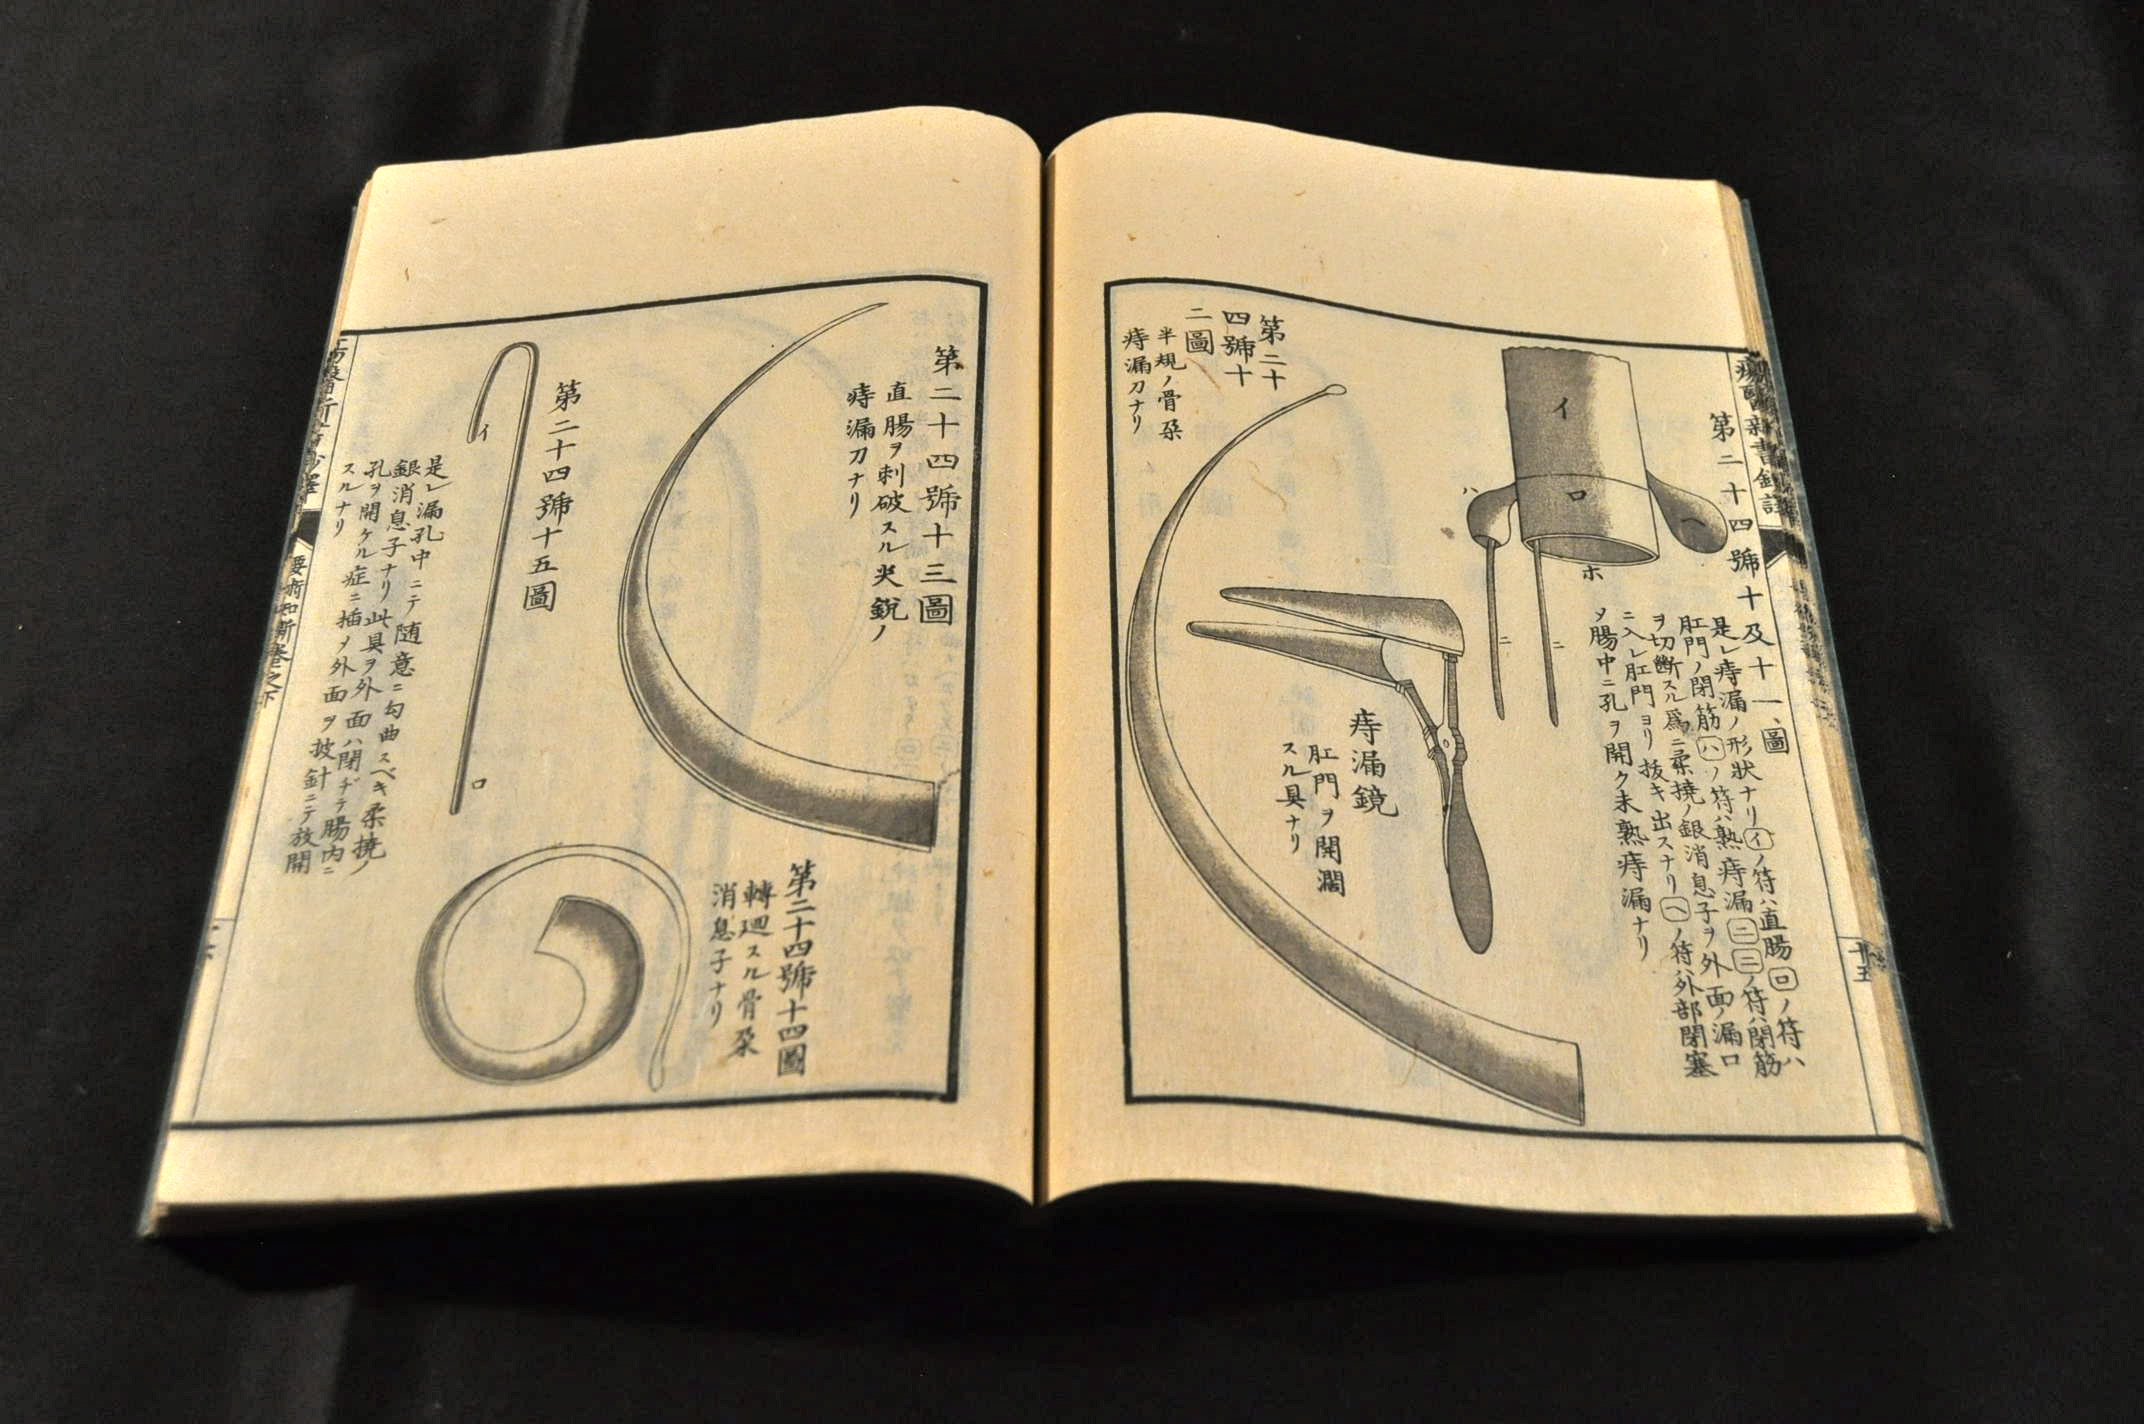 瘍醫新書鈔譯
十五
第二十四號十及十一、圖
是レ痔漏ノ形狀ナリイノ符ハ直腸ロノ符ハ
肛門ノ閉筋ハノ符ハ熟痔漏ニニノ符ハ閉筋
ヲ切斷スル爲ニ柔撓ノ銀消息子ヲ外面ノ漏口
ニ入レ肛門ヨリ抜キ出スナリヘノ符ハ外部閉塞
メ腸中ニ孔ヲ開ク未熟痔漏ナリ
イ
ロ
ハ
ヘ
ホ
ニ
ニ
痔漏鏡
肛門ヲ開濶
スル具ナリ
第二十
四號十
二圖
半規ノ骨朶
痔漏刀ナリ
第二十四號十三圖
直腸ヲ刺破スル尖銳ノ
痔漏刀ナリ
第二十四號十四圖
轉廻スル骨朶
消息子ナリ
第二十四號十五圖
イ
ロ
是レ漏孔中ニテ隨意ニ勾曲スベキ柔撓ノ
銀消息子ナリ此具ヲ外面ハ閉ヂテ腸内ニ
孔ヲ開ケル症ニ插メ外面ヲ披針ニテ放開
スルナリ